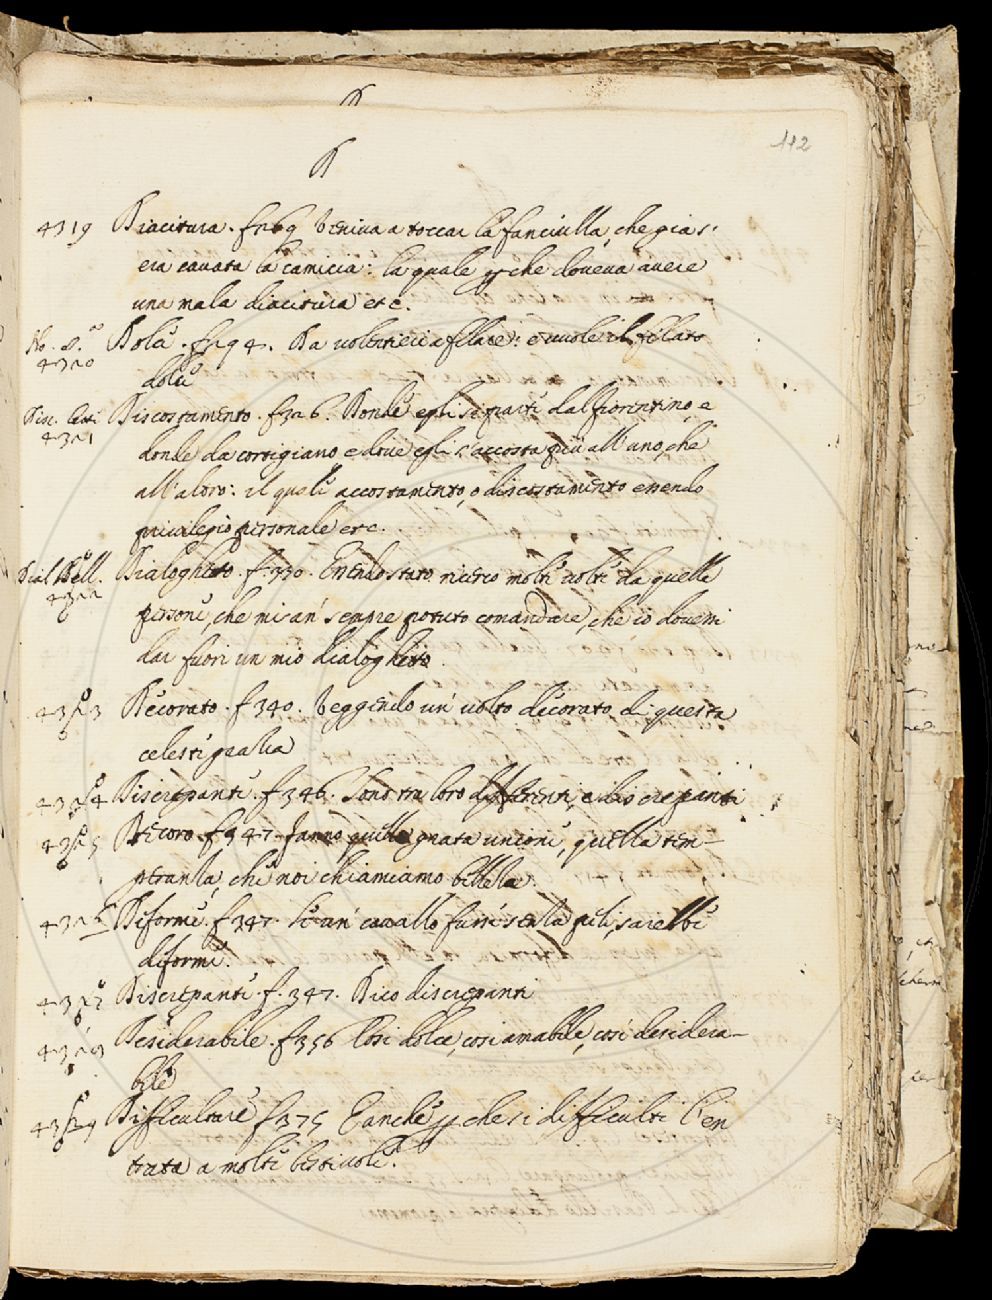 112
D
4319 Diacitura. f 269 Veniva a toccar la fanciulla, che gia s'
era cavata la camicia: la quale perche doveva avere
una mala diacitura etc.
4320 Dola. f 294. Da volentieri a filare: e vuole il filato
Disc. 4321 Discostamento. f 326. Donde egli si parti dal fiorentino, e
donde da cortigiano e dove egli s'accosta più all'uno, che
all'altro: il quale accostamento, o discostamento essendo
privilegio personale etc.
Dial. Bell. 4322 Dialoghetto. f. 330. Essendo stato ricerco molte volte da quelle
persone, che mi àn' sempre potuto comandare, che io dovessi
dar fuori un mio dialoghetto.
4323 Decorato. f 340. Veggendo un' volto decorato di questa
celeste grazia
4324 Discrepanti. f. 346. Sono tra loro differenti, e discrepanti
4325 Decoro. f 347. fanno quella grata unione, quella tem-
peranza, che noi chiamiamo bellezza.
4326 Diforme. f 347. Se un' cavallo fusse senza peli, sarebbe
diforme.
4327 Discrepanti. f. 347. Dico discrepanti
4328 Desiderabile. f 356 Così dolce, così amabile, così desidera-
bile
4329 Difficultare f 375 E anche perche si difficulti l'en
trata a molte bestivole.